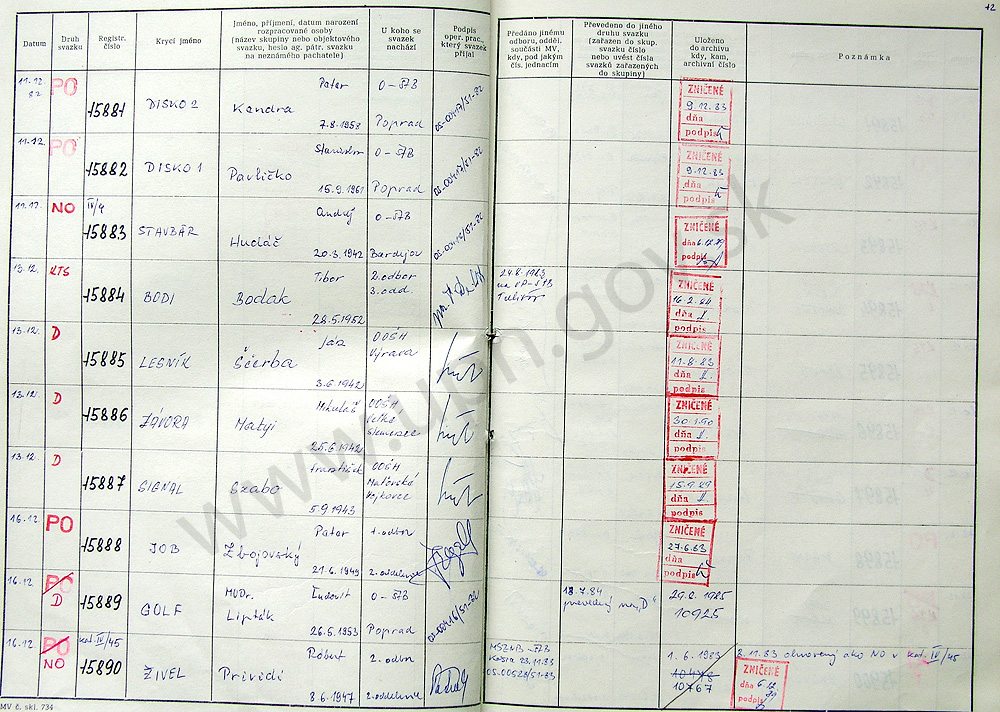 12
Datum
Druh svazku
Registr. číslo
Krycí jméno
Jméno, příjmení, datum narození rozpracované osoby (název skupiny nebo objektového svazku, heslo ag. pátr. svazku na neznámého pachatele)
U koho se svazek nachází
Podpis oper. prac., který svazek přijal
Předáno jinému odboru, odděl. součásti MV, kdy, pod jakým čís. jednacím
Převedeno do jiného druhu svazku (zařazen do skup. svazku číslo nebo uvést čísla svazků zařazených do skupiny)
Uloženo do archivu kdy, kam, archivní číslo
Poznámka
11.12. 82 PO 15881 DISKO 2 Peter Kandra 7.8.1958 O-ŠTB Poprad 05-00417/51-82 ZNIČENÉ 9.12.83 dňa podpis
11.12. PO 15882 DISKO 1 Stanislav Pavličko 15.9.1961 O-ŠTB Poprad 05-00417/51-82 ZNIČENÉ 9.12.83 dňa podpis
11.12. NO IV/4 15883 STAVBÁR Andrej Hudáč 20.3.1942 O-ŠTB Bardejov ZNIČENÉ dňa 6.12.89 podpis
13.12. KTS 15884 BODI Tibor Bodak 28.5.1952 2.odbor 3.odd. 24.8.1983 ZNIČENÉ 16.2.84 dňa podpis
13.12. D 15885 LESNÍK Ján Ščerba 3.6.1942 OOŠH Výrava ZNIČENÉ 11.8.83 dňa podpis
13.12. D 15886 ZÁVORA Mikuláš Matyi 25.6.1942 OOŠH Veľké Slemence ZNIČENÉ 30.1.90 dňa podpis
13.12. D 15887 SIGNAL František Szabo 5.9.1943 OOŠH Maťovské Vojkovce ZNIČENÉ dňa podpis
16.12. PO 15888 JOB Peter Zbojovský 21.6.1949 1.odbor 2.oddelenie ZNIČENÉ 27.6.83 dňa podpis
16.12. PO D 15889 GOLF MUDr. Ľudovít Lipták 26.5.1953 O-ŠTB Poprad 05-00416/51-82 13.7.84 prevedený na „D“ 29.8.1985 10925
16.12. PO NO kat. IV/45 15890 ŽIVEL Róbert Prividi 8.6.1947 2.odbor 2.oddelenie 05-00528/51-83 1.6.1983 10478 10767 8.11.83 obnovený ako NO v kat. IV/45 ZNIČENÉ dňa podpis
MV č. skl. 734
www.upn.gov.sk